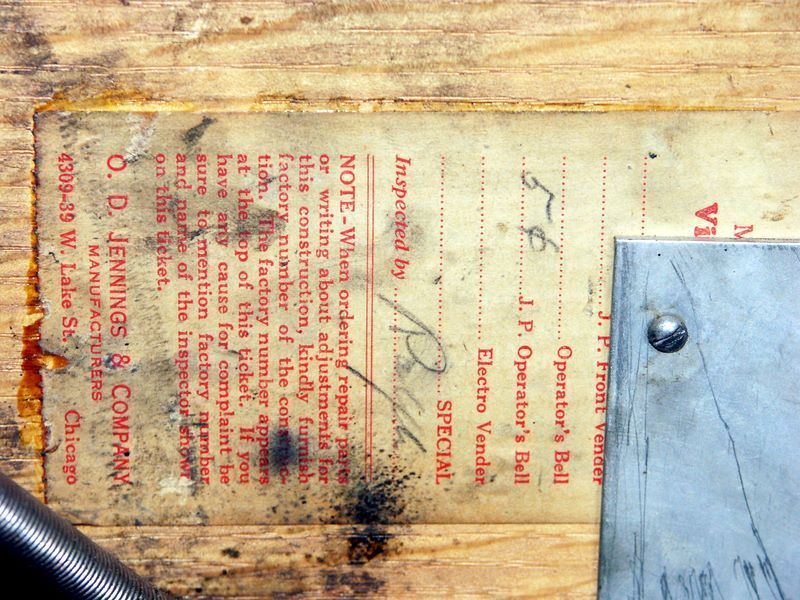 M
Vi
J. P. Front Vender
Operator's Bell
5¢ J. P. Operator's Bell
Electro Vender
SPECIAL
Inspected by Ralph
NOTE-When ordering repair parts
or writing about adjustments for
this construction, kindly furnish
factory number of the construc-
tion. The factory number appears
at the top of this ticket. If you
have any cause for complaint be
sure to mention factory number
and name of the inspector shown
on this ticket.
O. D. JENNINGS & COMPANY
MANUFACTURERS
4309-39 W. Lake St. Chicago